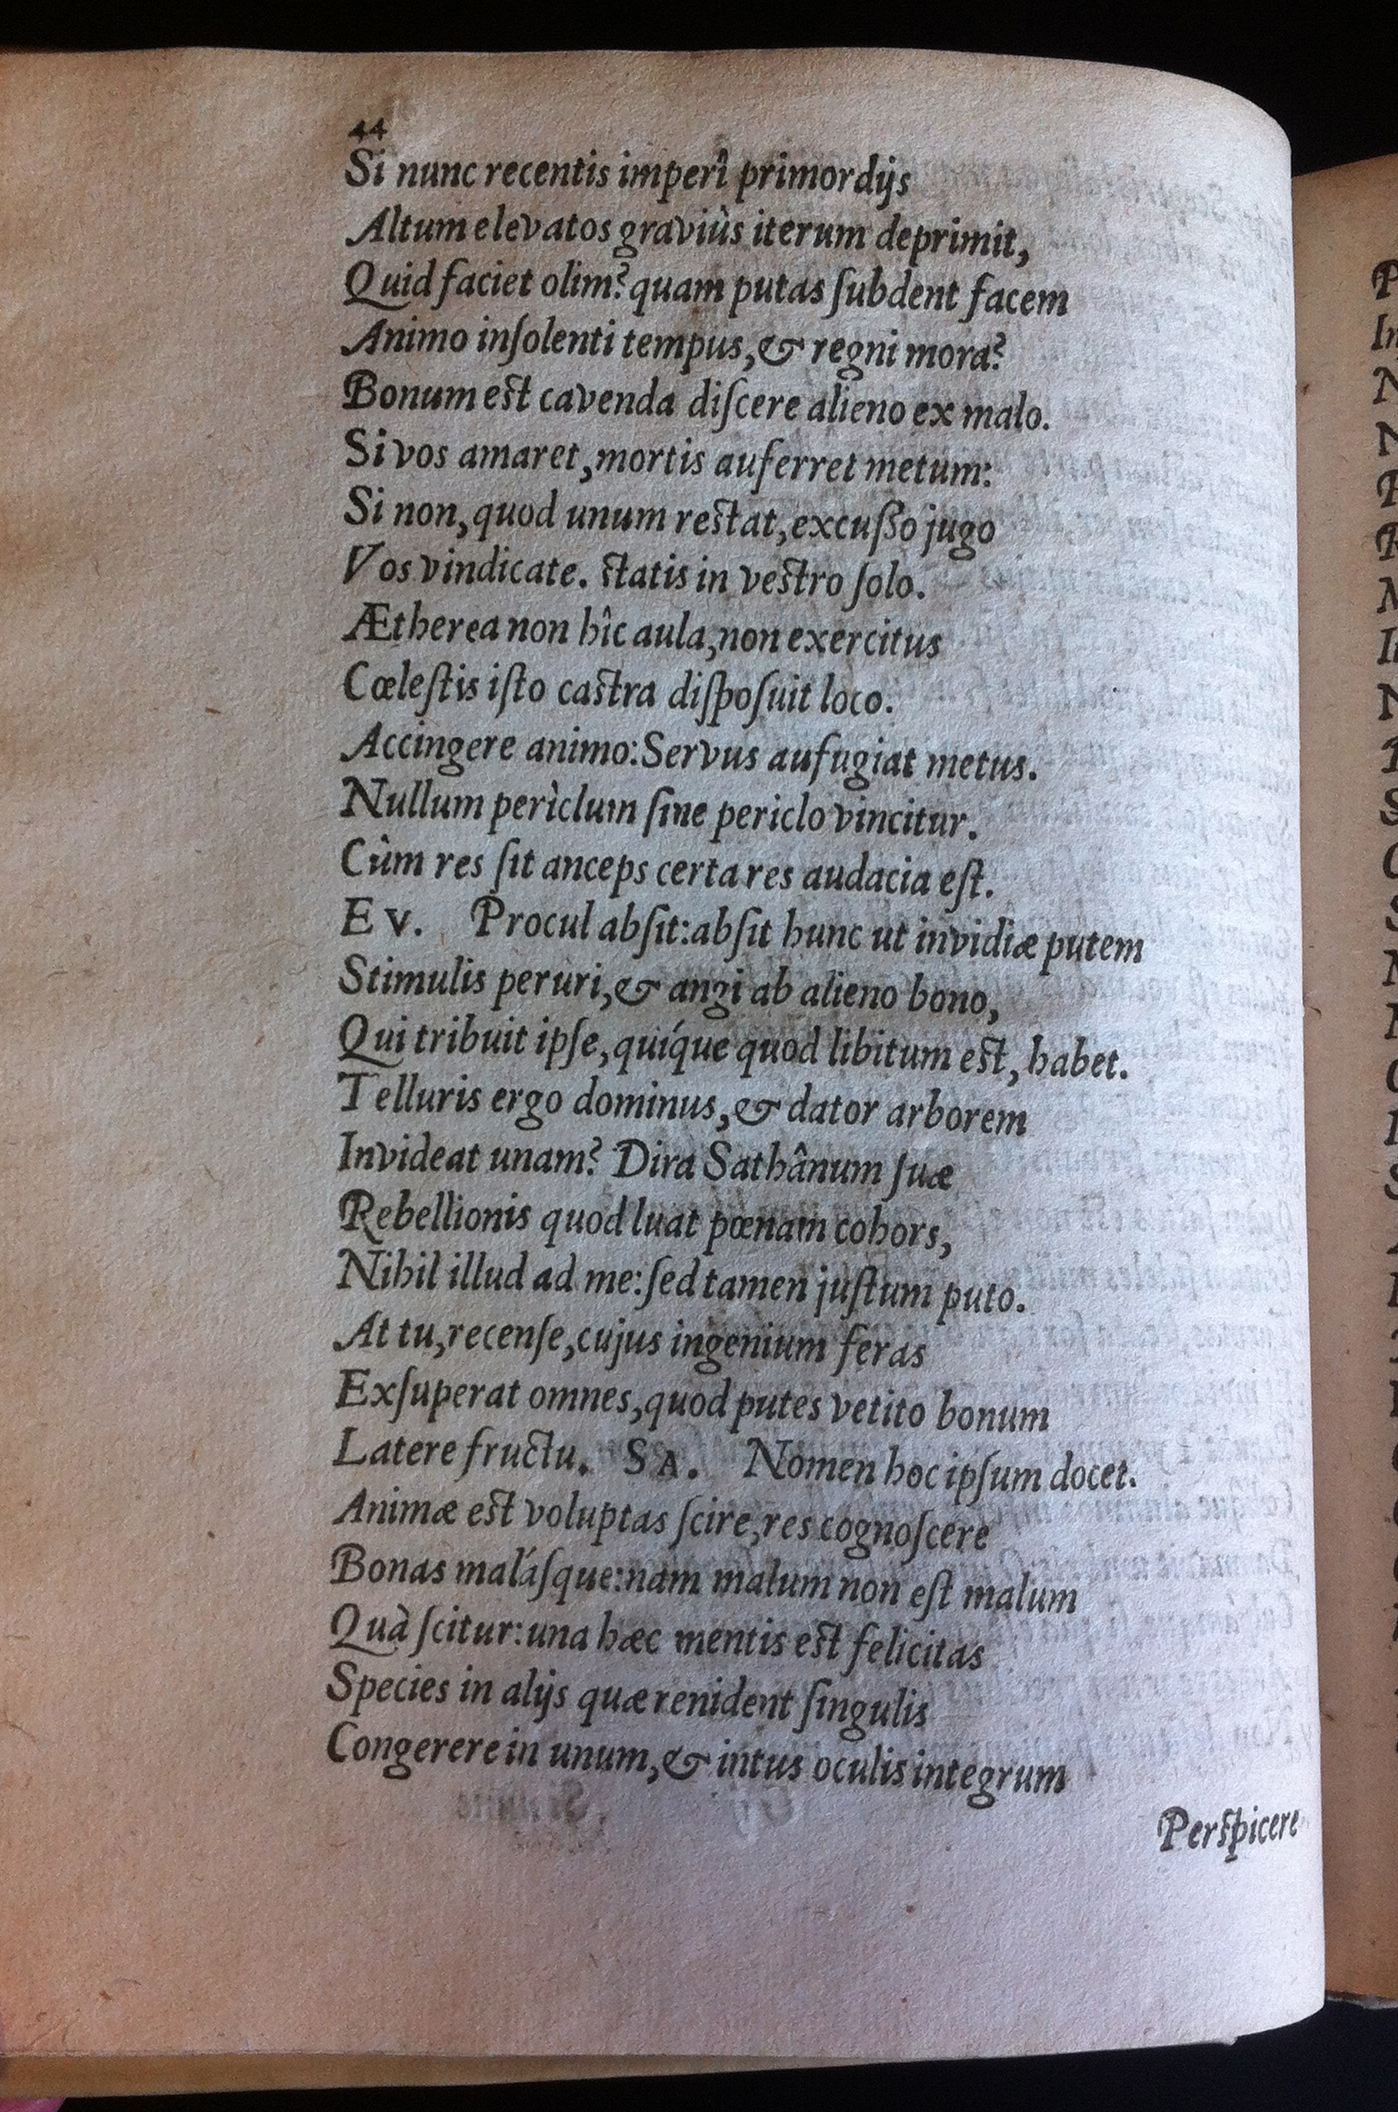 44
Si nunc recentis imperî primordijs
Altum elevatos graviùs iterum deprimit,
Quid faciet olim? quam putas ſubdent facem
Animo inſolenti tempus, & regni mora?
Bonum est cavenda diſcere alieno ex malo.
Si vos amaret, mortis auferret metum:
Si non, quod unum restat, excuſſo jugo
Vos vindicate. statis in vestro ſolo.
Ætherea non hîc aula, non exercitus
Cœleſtis iſto castra diſpoſuit loco.
Accingere animo: Servus aufugiat metus.
Nullum perìclum ſine periclo vincitur.
Cùm res ſit anceps certa res audacia eſt.
EV. Procul abſit: abſit hunc ut invidiæ putem
Stimulis peruri, & angi ab alieno bono,
Qui tribuit ipſe, quíque quod libitum est, habet.
Telluris ergo dominus, & dator arborem
Invideat unam? Dira Sathânum ſuæ
Rebellionis quod luat pœnam cohors,
Nihil illud ad me: ſed tamen juſtum puto.
At tu, recenſe, cujus ingenium feras
Exſuperat omnes, quod putes vetito bonum
Latere fructu. SA. Nomen hoc ipſum docet.
Animæ est voluptas ſcire, res cognoſcere
Bonas maláſque: nam malum non eſt malum
Quà ſcitur: una hæc mentis est felicitas
Species in alijs quæ renident ſingulis
Congerere in unum, & intus oculis integrum
Perspicere